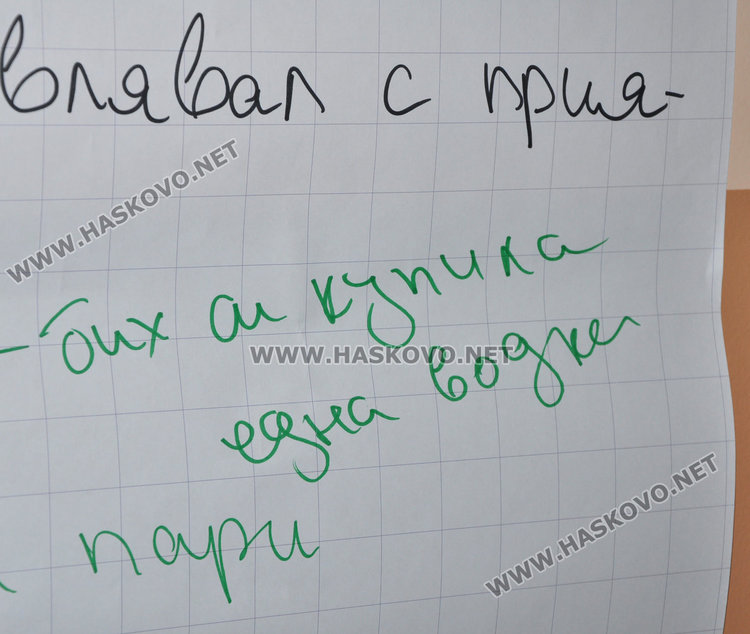 влявал с прия-
WWW.HASKOVO.NET
- бих си купила
WWW.HASKOVO.NET
една водка
WWW.HASKOVO.NET
пари